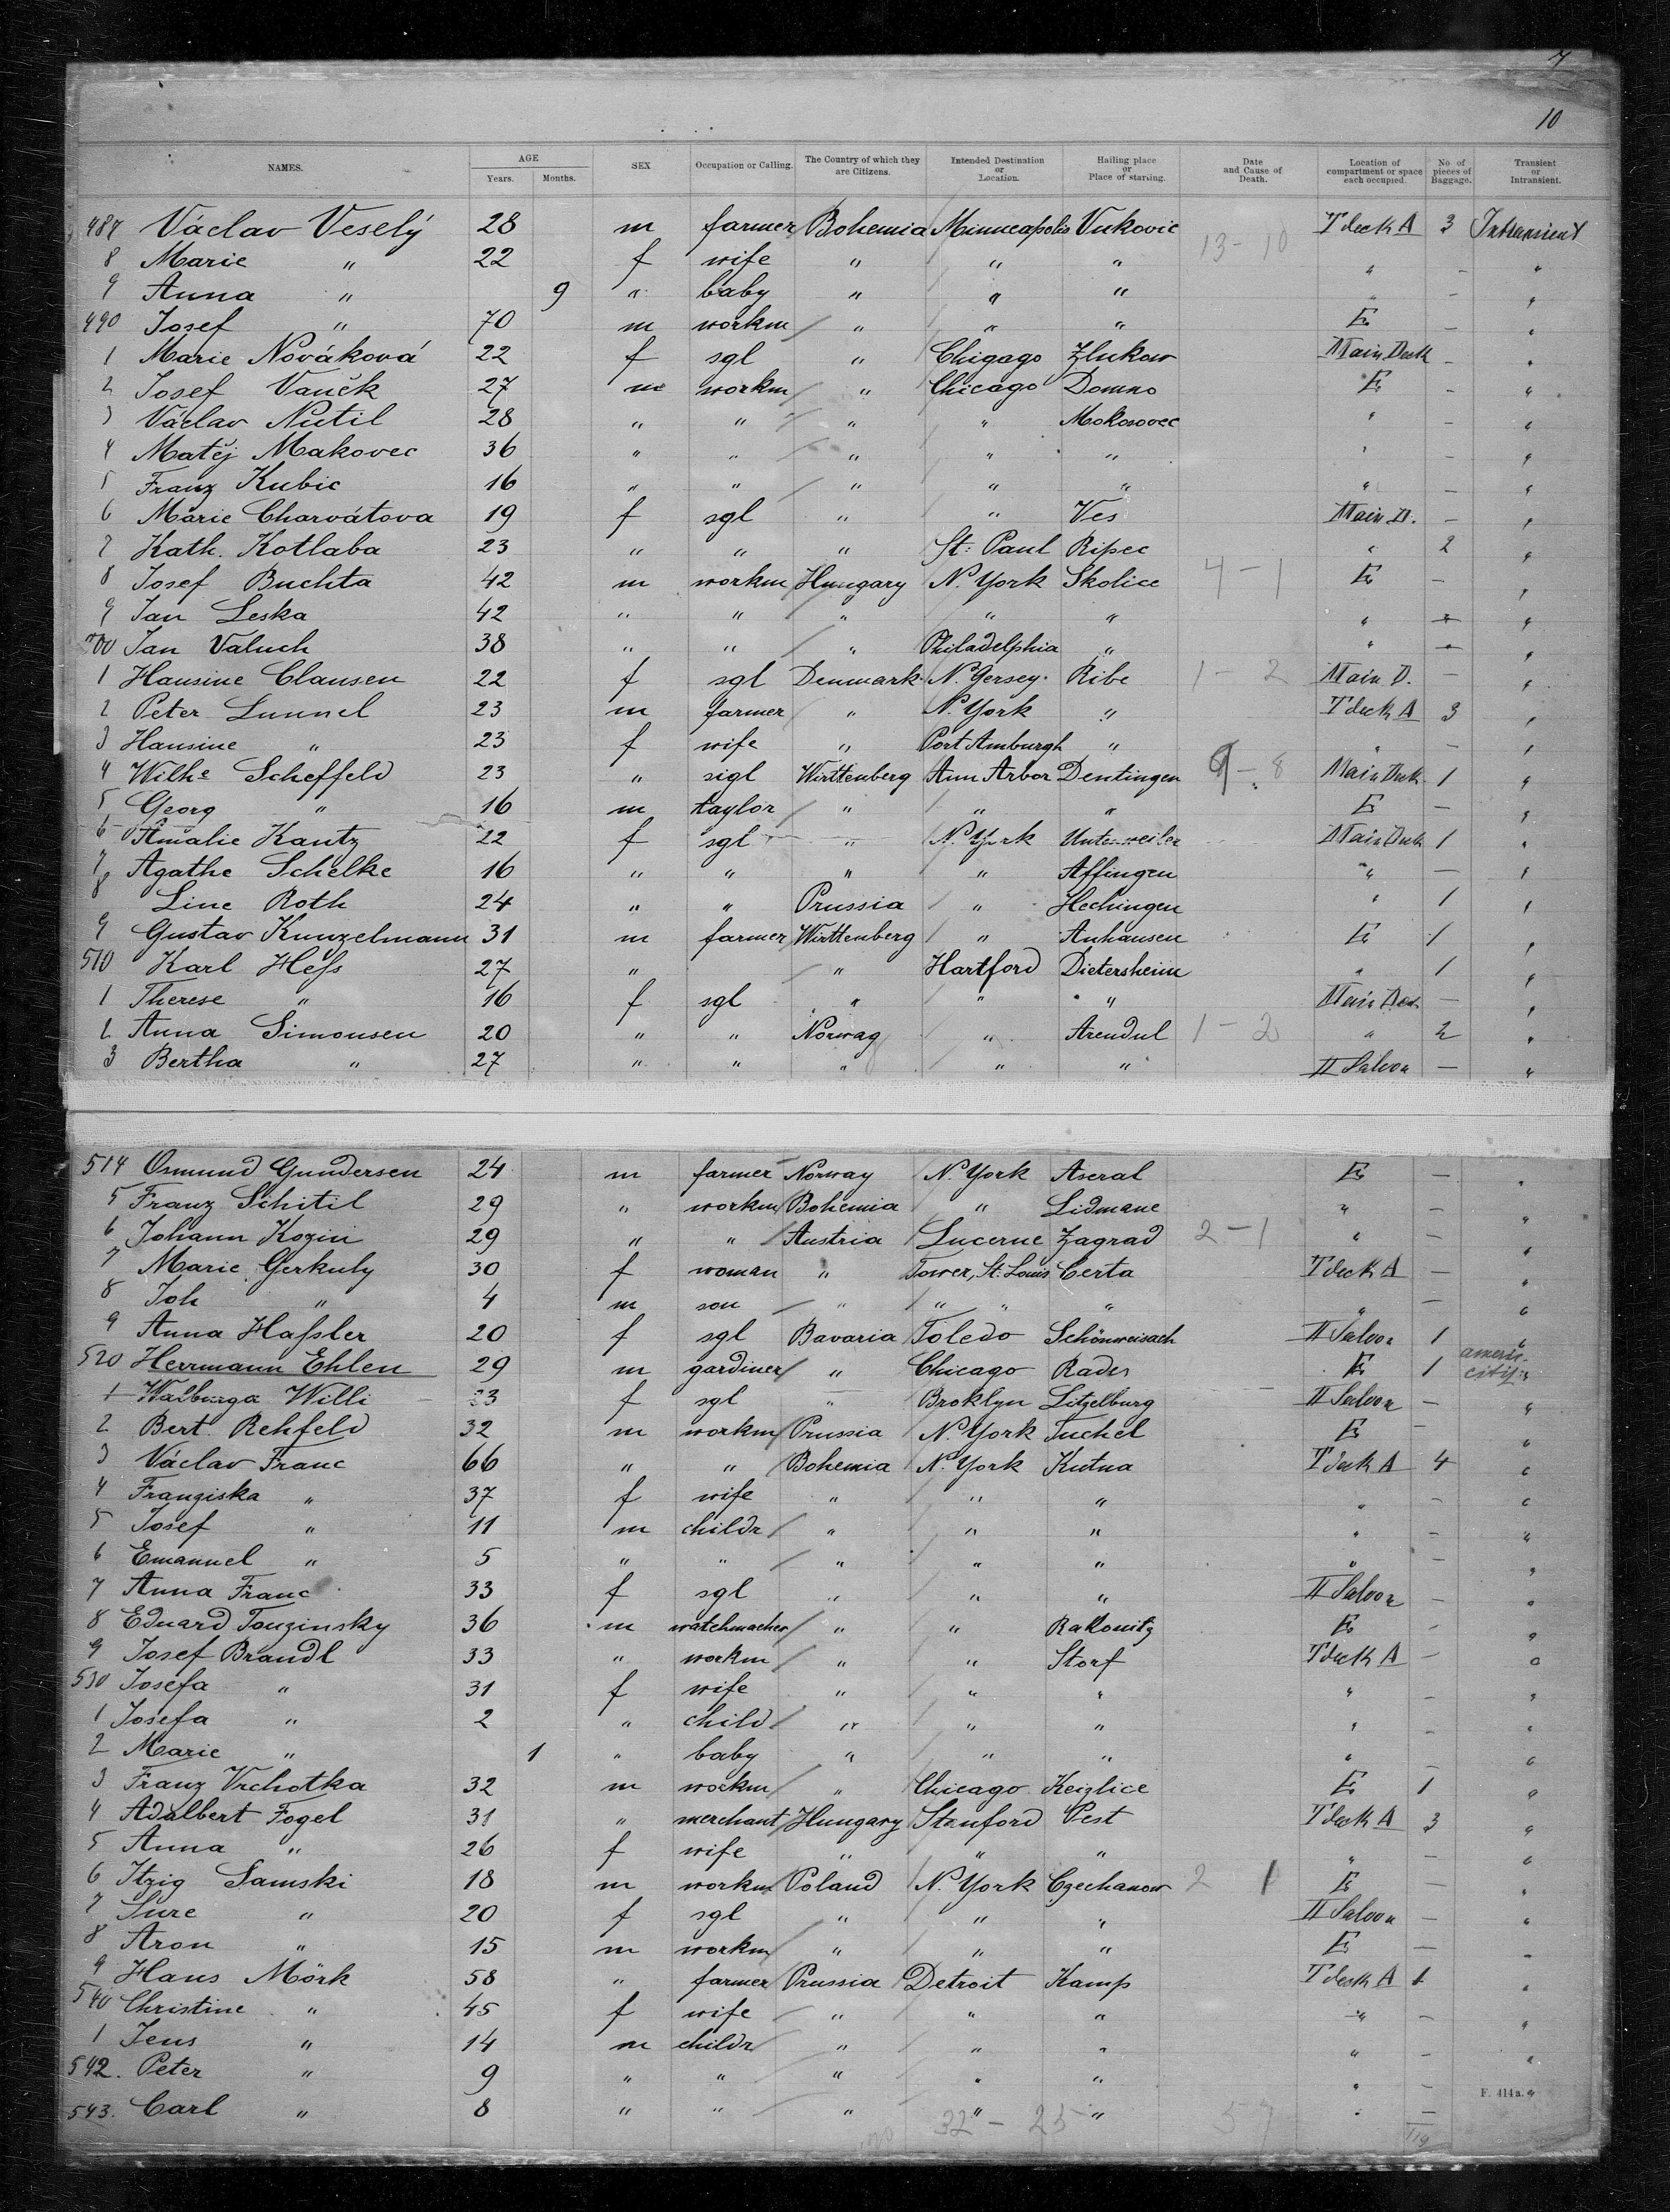 7
10
NAMES. AGE Years. Months. SEX Occupation or Calling. The Country of which they are Citizens. Intended Destination or Location. Hailing place or Place of starting. Date and Cause of Death. Location of compartment or space each occupied. No of pieces of Baggage. Transient or Intransient.
487 Václav Veselý 28 m farmer Bohemia Minneapolis Vukovic 13-10 T deck A 3 Intransient
8 Marie " 22 f wife " " " " - "
9 Anna " 9 " baby " " " " - "
490 Josef " 70 m workm " " " E - "
1 Marie Nováková 22 f sgl " Chigago Zlukow Main Deck - "
2 Josef Vaněk 27 m workm " Chicago Domno E - "
3 Václav Nutil 28 " " " " Mokosovec " - "
4 Matěj Makovec 36 " " " " " " - "
5 Franz Kubic 16 " " " " " " - "
6 Marie Charvátova 19 f sgl " " Ves Main D. - "
7 Kath. Kotlaba 23 " " " St. Paul Ripec " 2 "
8 Josef Buchta 42 m workm Hungary N. York Skolice 4-1 E - "
9 Jan Leska 42 " " " " " " - "
500 Jan Valuch 38 " " " Philadelphia " " - "
1 Hansine Clausen 22 f sgl Denmark N. Yersey. Ribe 1-2 Main D. - "
2 Peter Lunnel 23 m farmer " N. York " T deck A 3 "
3 Hansine " 23 f wife " Port Amburgh " " - "
4 Wilhe Scheffeld 23 " sigl Württenberg Ann Arbor Dentingen 9-8 Main Deck 1 "
5 Georg " 16 m taylor " " " E - "
6 Amalie Kantz 22 f sgl " N. York Unterweiler Main Deck 1 "
7 Agathe Schelke 16 " " " " Affingen " - "
8 Line Roth 24 " " Prussia " Hechingen " 1 "
9 Gustav Kunzelmann 31 m farmer Württenberg " Anhausen E 1 "
510 Karl Heſs 27 " " Hartford Dietersheim " 1 "
1 Therese " 16 f sgl " " " Main Deck - "
2 Anna Simonsen 20 " " Norwag " Arendul 1-2 " 2 "
3 Bertha " 27 " " " " " II Saloon - "
514 Osmund Gundersen 24 m farmer Norway N. York Aseral E - "
5 Franz Schitil 29 " workm Bohemia " Lidmane " - "
6 Johann Kozin 29 " " Austria Lucerne Zagrad 2-1 " - "
7 Marie Gerkuly 30 f woman " Tower, St. Louis Certa T deck A - "
8 Joh " 4 m son " " " " " - "
9 Anna Haſsler 20 f sgl Bavaria Toledo Schönweisach II Saloon 1 "
520 Herrmann Ehlen 29 m gardiner " Chicago Rades E 1 americ. citiz. "
1 Walburga Willi 23 f sgl " Broklyn Litzelburg II Saloon - "
2 Bert. Rehfeld 32 m workm Prussia N. York Tuchel E - "
3 Václav Franc 66 " " Bohemia N. York Kutna T deck A 4 "
4 Franziska " 37 f wife " " " " - "
5 Josef " 11 m childr " " " " - "
6 Emanuel " 5 " " " " " " - "
7 Anna Franc 33 f sgl " " " II Saloon - "
8 Eduard Touzinsky 36 m watchmacher " " Rakonitz E - "
9 Josef Brandl 33 " workm " " Storf T deck A - "
530 Josefa " 31 f wife " " " " - "
1 Josefa " 2 " child " " " " - "
2 Marie " 1 " baby " " " " - "
3 Franz Vrchotka 32 m workm " Chicago Keizlice E 1 "
4 Adalbert Fogel 31 " merchant Hungary Stanford Pest T deck A 3 "
5 Anna " 26 f wife " " " " - "
6 Itzig Samski 18 m workm Poland N. York Czechanow 2 1 E - "
7 Sure " 20 f sgl " " " II Saloon - "
8 Aron " 15 m workm " " " E - "
9 Hans Mörk 58 " farmer Prussia Detroit Kamp T deck A 1 "
540 Christine " 45 f wife " " " " - "
1 Jens " 14 m childr " " " " - "
542. Peter " 9 " " " " " " - "
F. 414a.
543. Carl " 8 " " " " " " - "
32 - 25 57
119